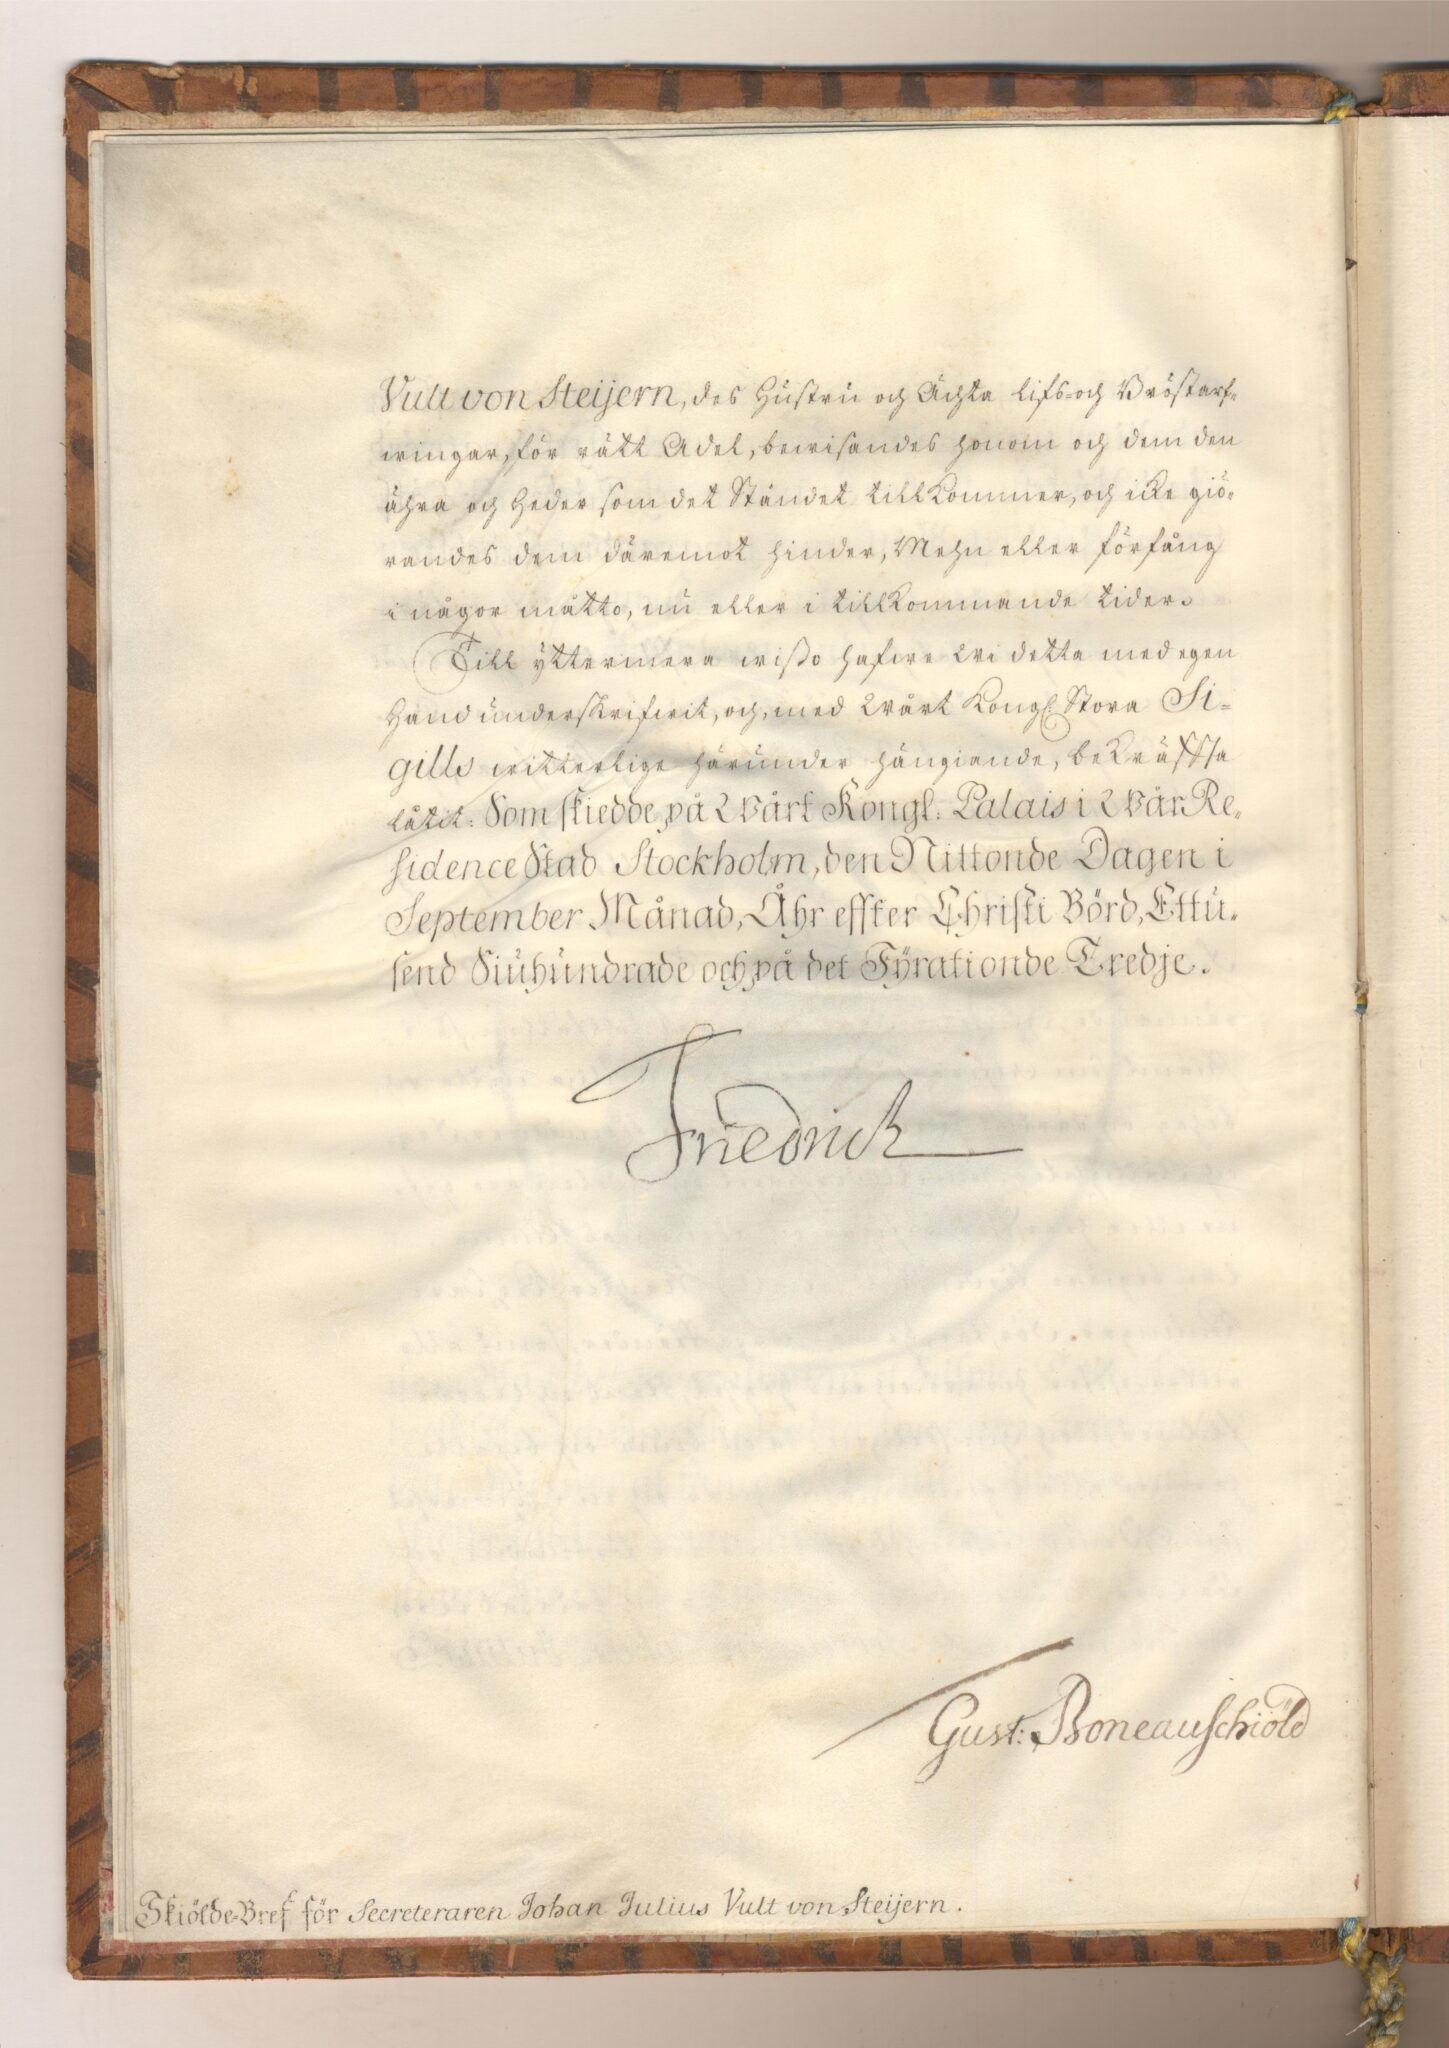 Vult von Steijern, des Hustru och Ächta Lifs- och Bröstarf-
wingar, för rätt Adel, bewisandes honom och dem den
ähra och heder som det Ståndet tillkommer, och icke giö-
randes dem däremot hinder, Mehn eller förfång
i någor måtto, nu eller i tillkommande tider.
Till yttermera wißo hafwe Wi detta med egen
Hand underskrifwit, och, med Wårt Kongl. Stora Si-
gills witterlige härunder hängiande, bekräffta
låtit. Som skiedde på Wårt Kongl: Palais i Wår Re-
sidence Stad Stockholm, den Nittonde Dagen i
September Månad, Åhr effter Christi Börd, Ettu-
send Siuhundrade och på det Fyrationde Tredje.
Friedrich
Gust: Boneauschiöld
Skiölde-Bref för Secreteraren Johan Julius Vult von Steijern.